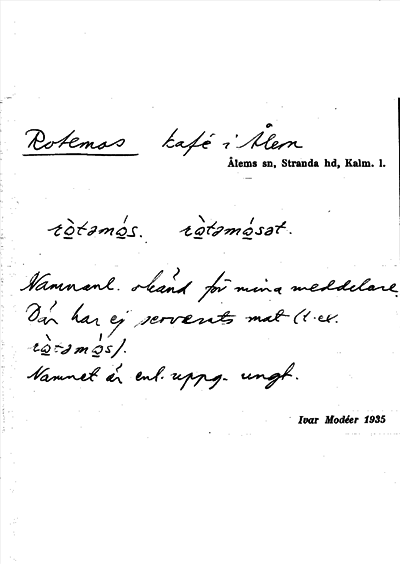 Rotemos kafé i Ålem
Ålems sn, Stranda hd, Kalm. l.
rò̲təmó̲s. rò̲təmó̲sət.
Namnanl. okänd för mina meddelare.
Där har ej serverats mat (t. ex.
rò̲təmó̲s).
Namnet är enl. uppg. ungt.
Ivar Modéer 1935